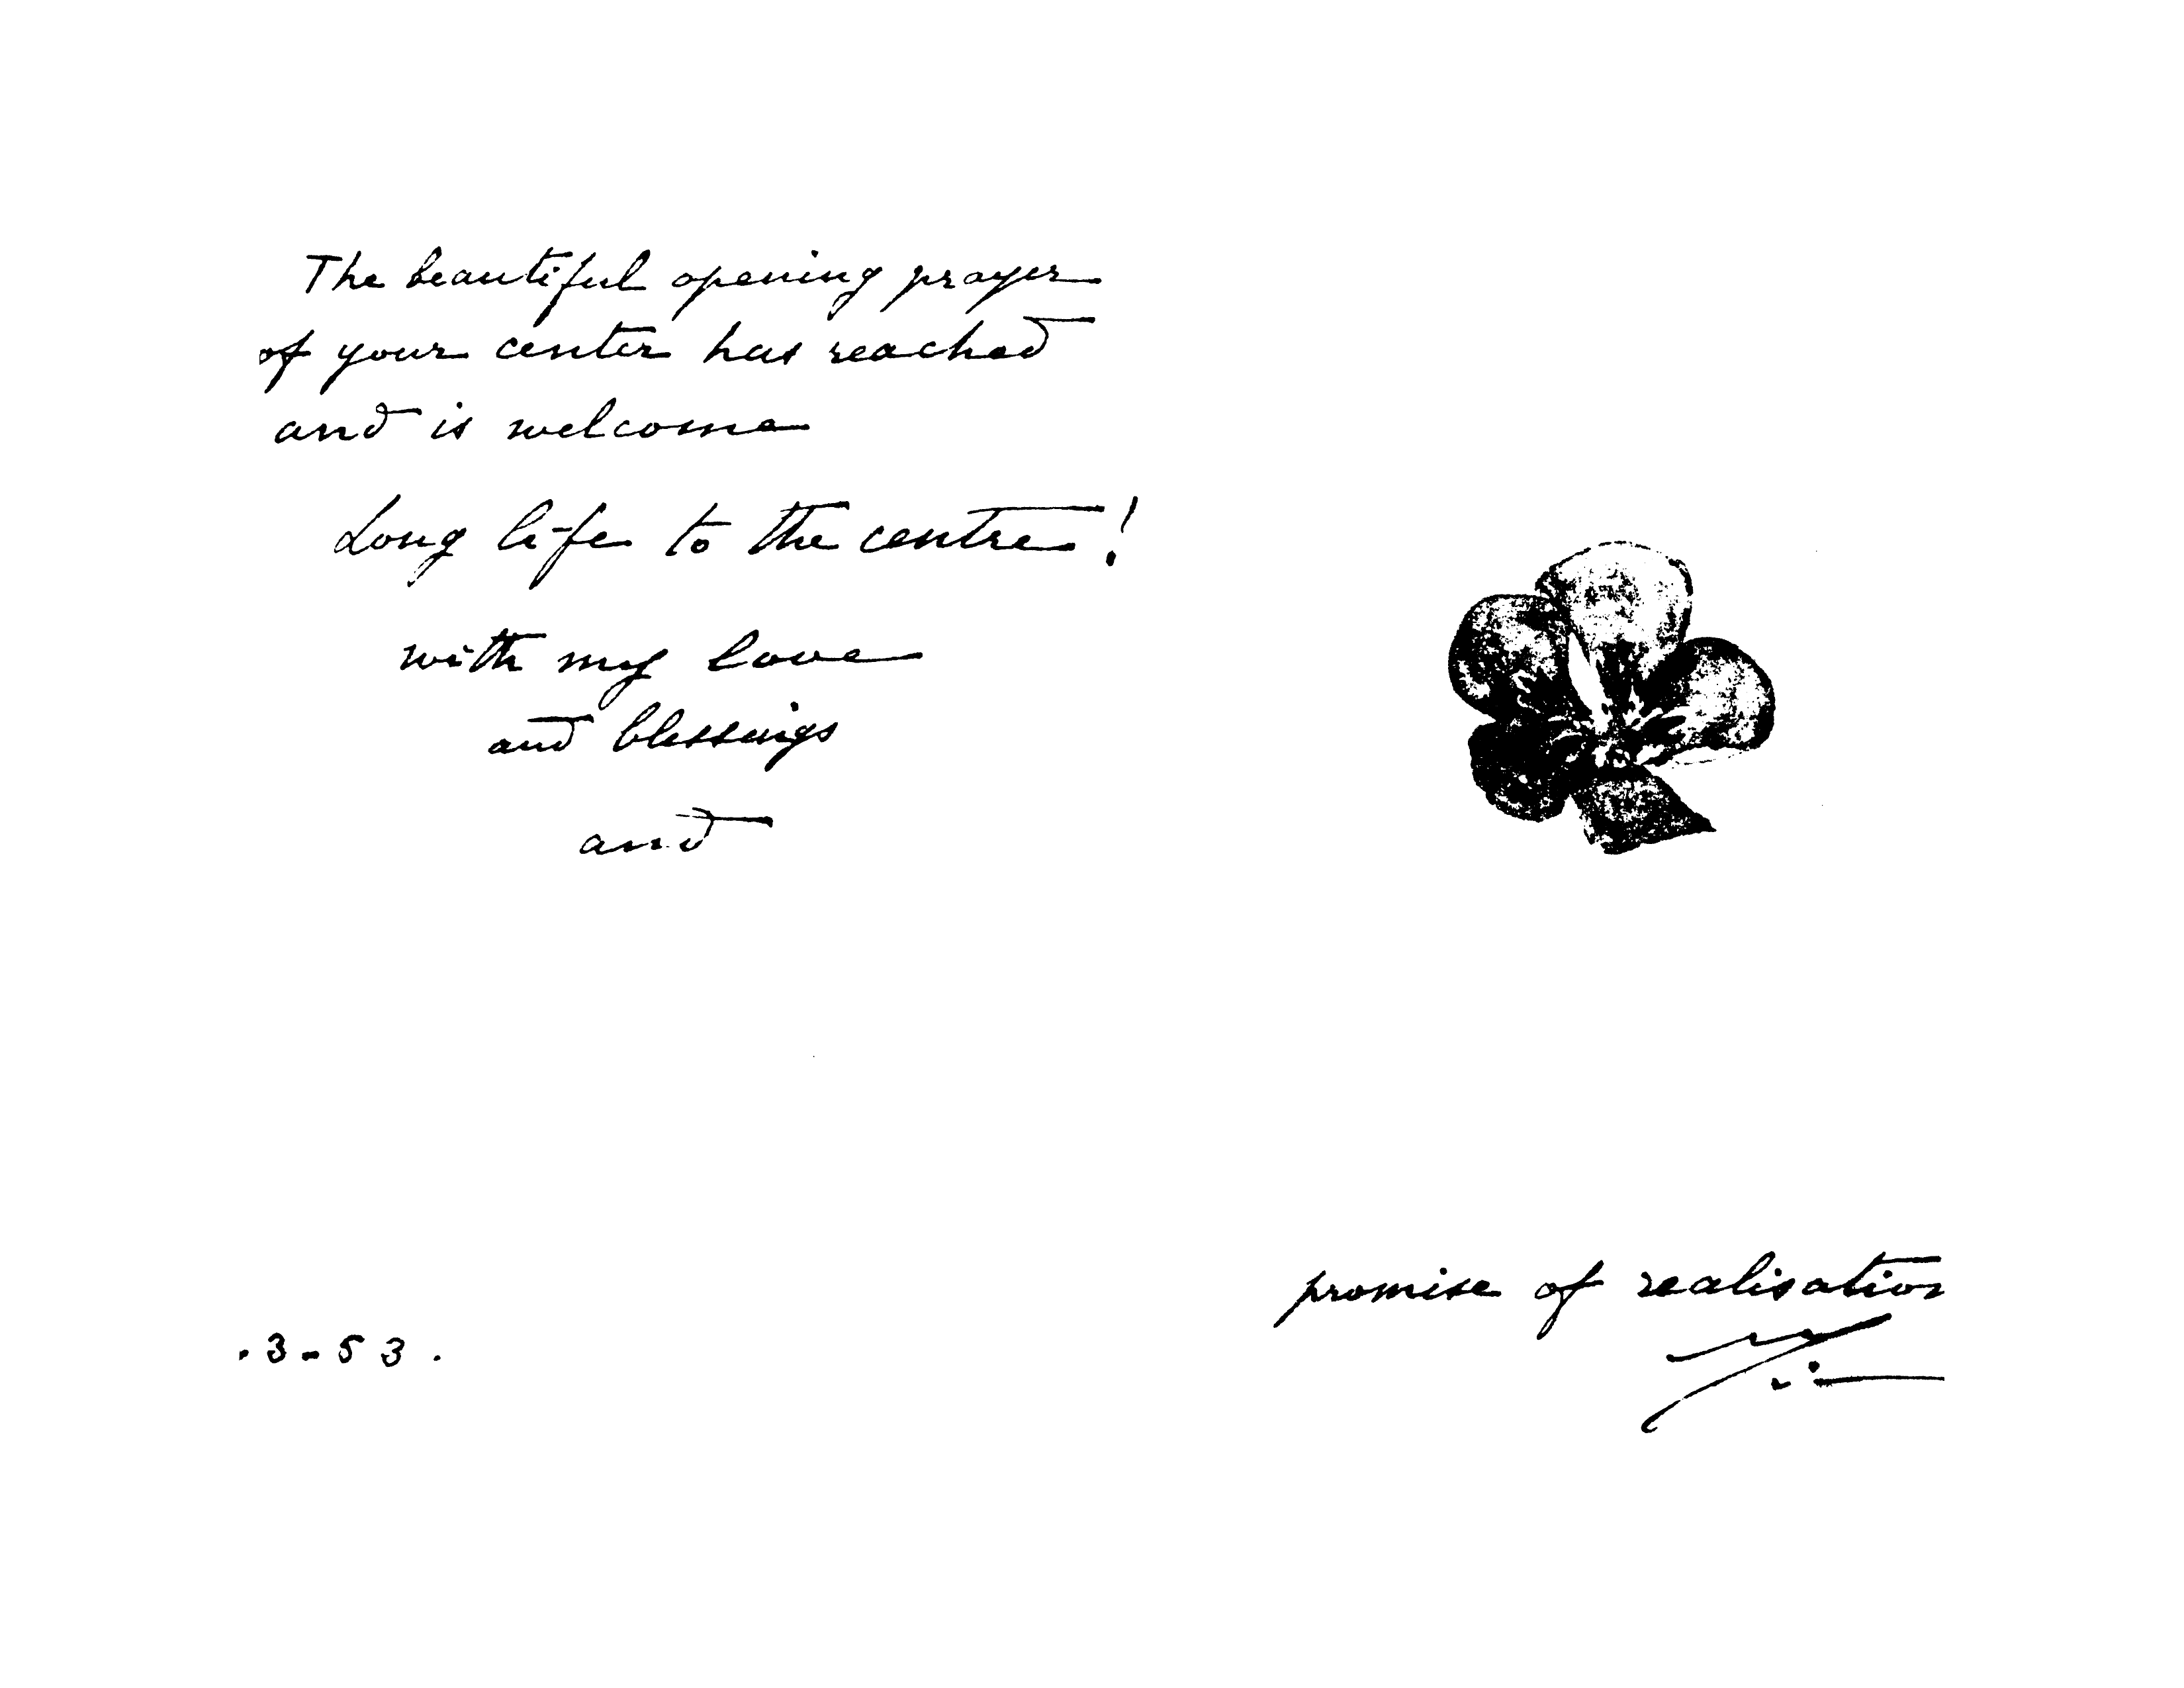 The beautiful opening prayer
of your center has reached
and is welcome
Long life to the centre!
with my love
and blessings
and
promise of realisation
.3-53.